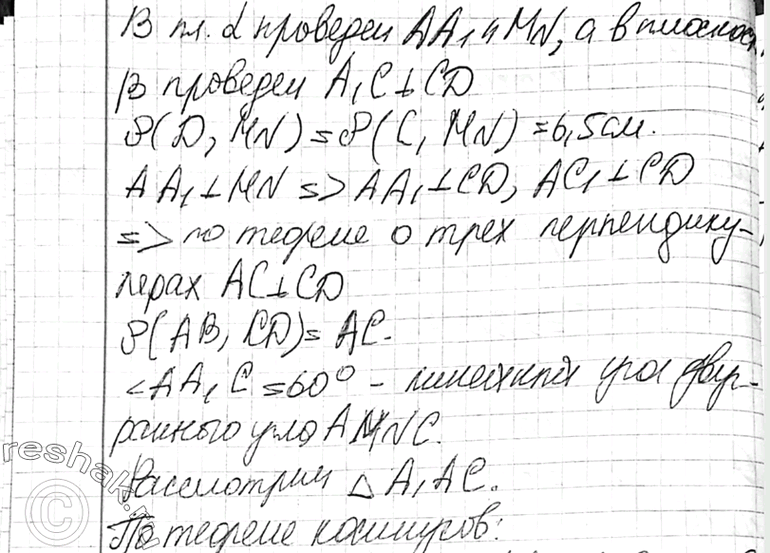 В пл. α проведен AA₁ ⊥ MN, а в плоскос
β проведен A₁C ⊥ CD
ρ(D, MN) = ρ(C, MN) = 6,5 см.
AA₁ ⊥ MN => AA₁ ⊥ CD, AC₁ ⊥ CD
=> по теореме о трех перпендику-
лерах AC ⊥ CD
ρ(AB, CD) = AC.
∠AA₁C = 60° - линейный угол двуг-
ранного угла AMNC.
Рассмотрим △ A₁AC.
По теореме косинусов:
reshak
©